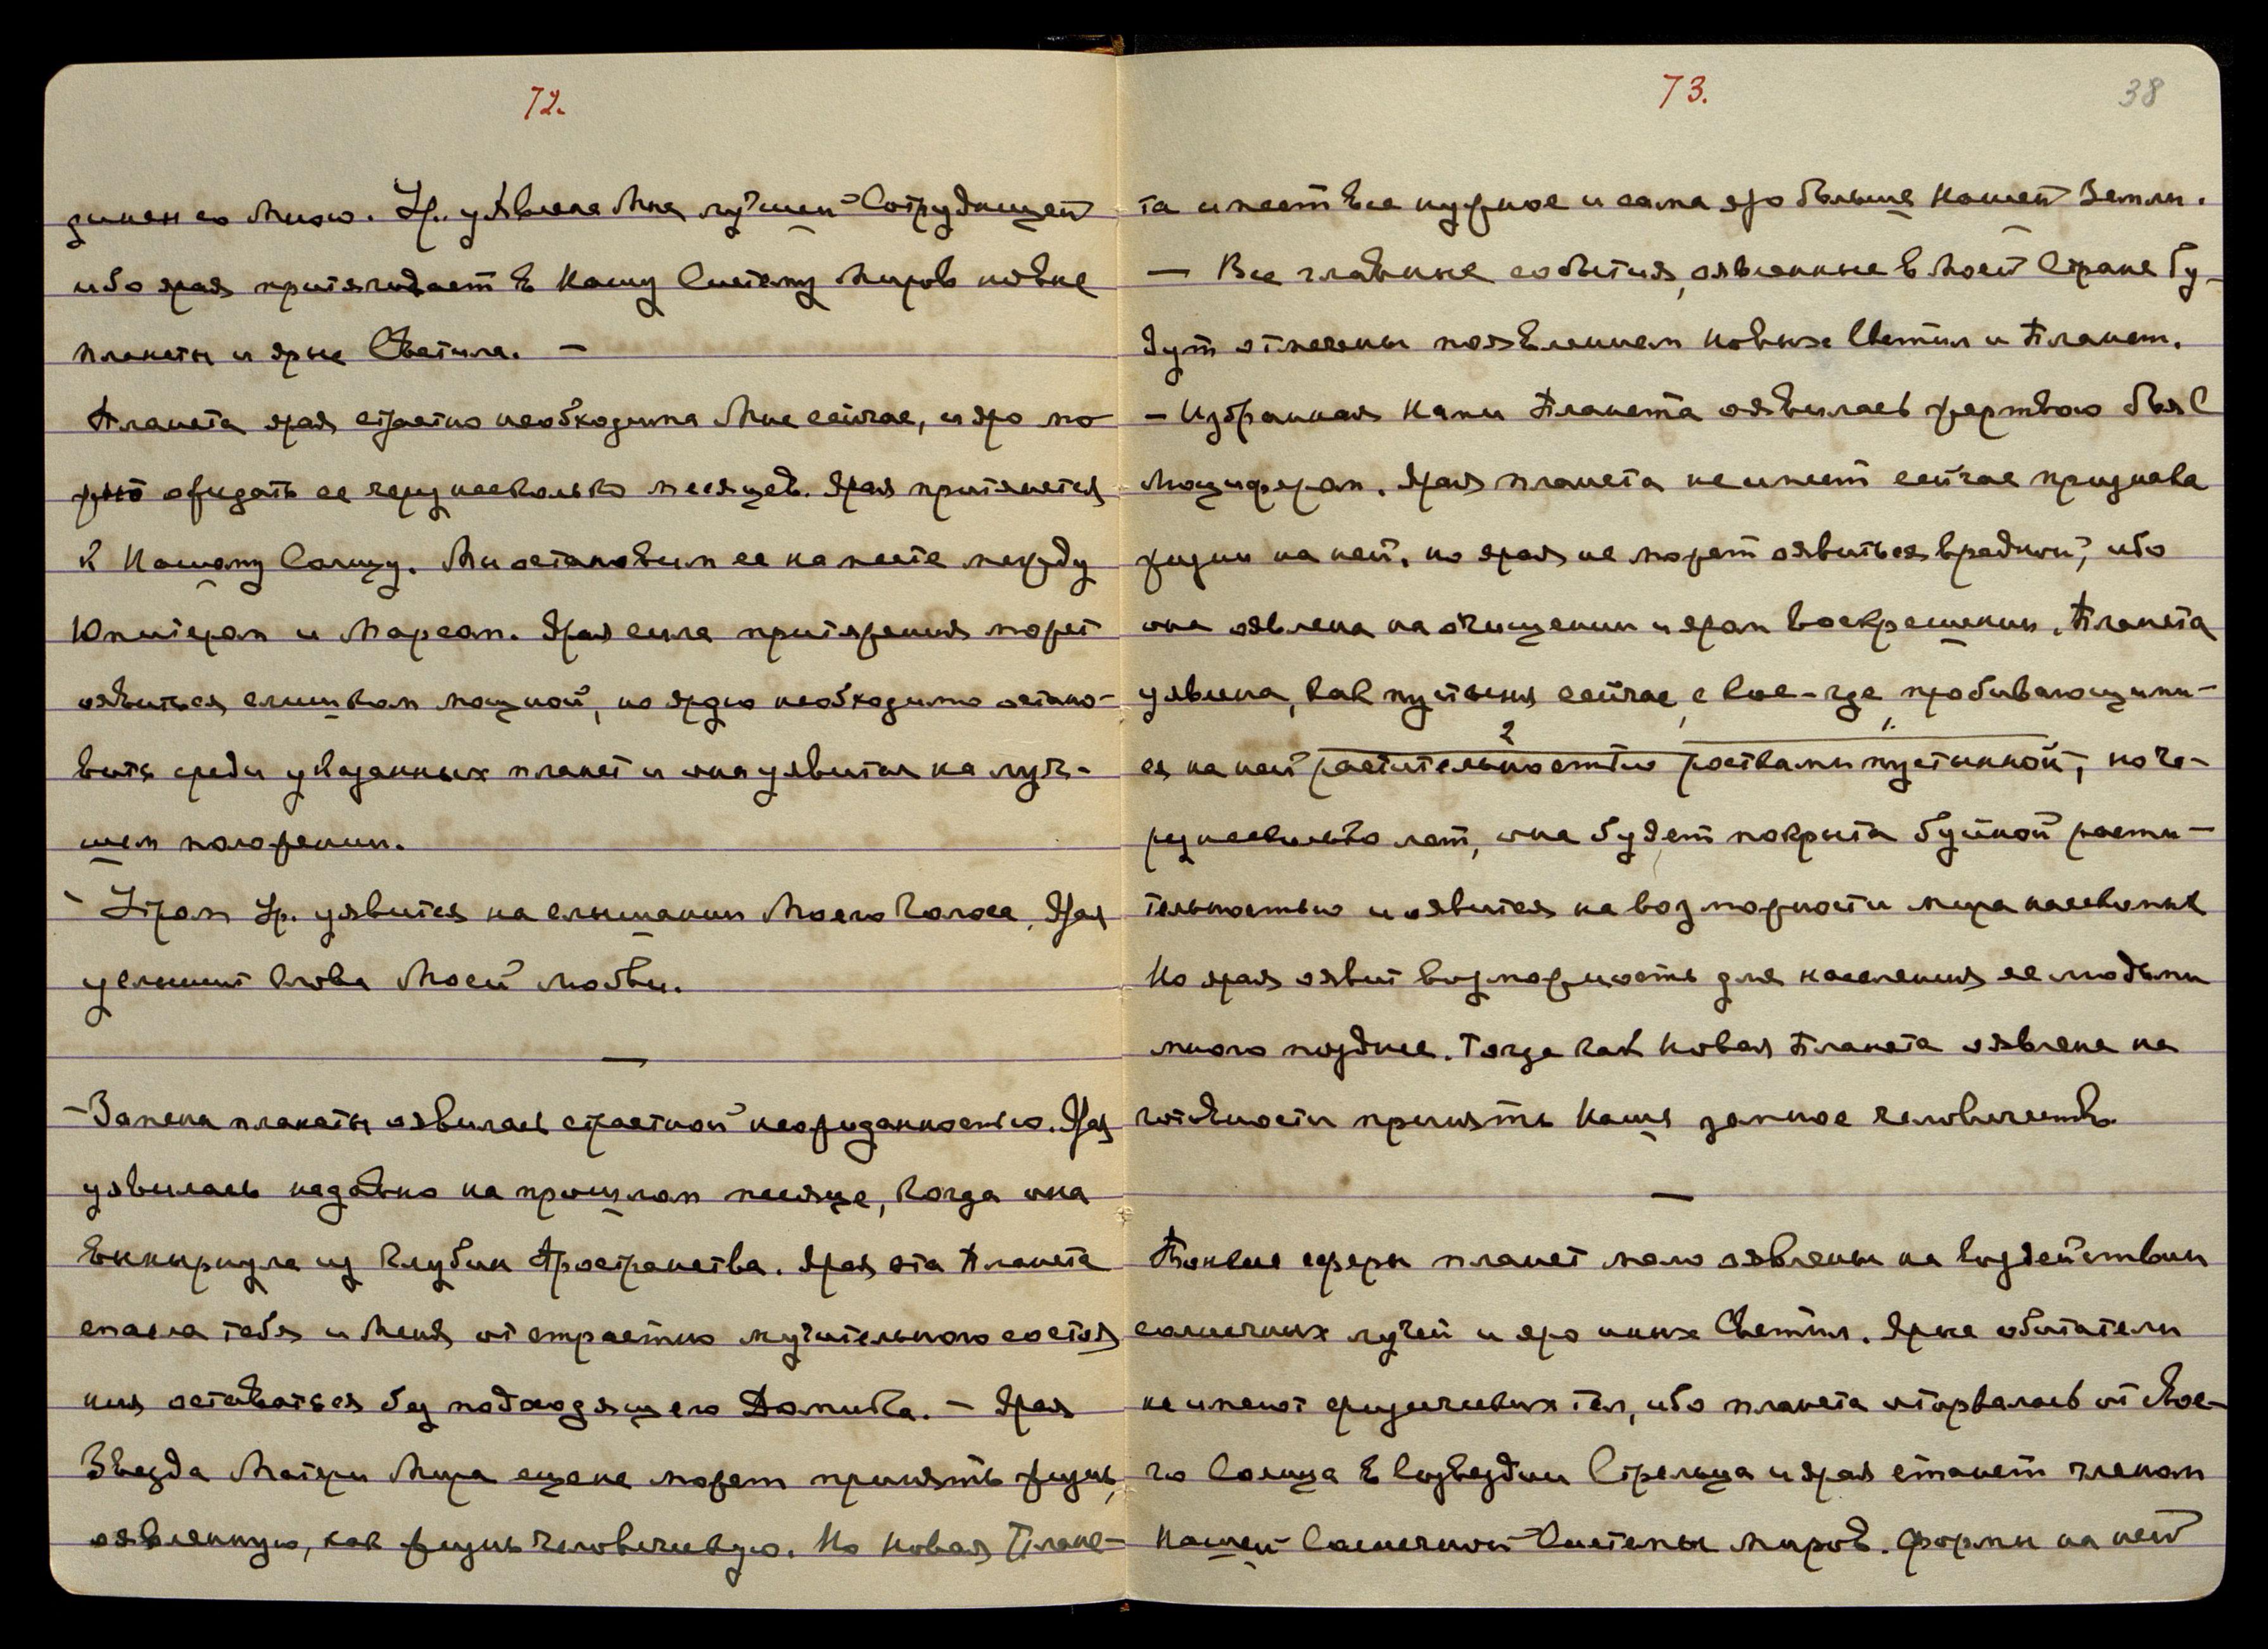 72.
зинен со Мною. Ур. уявлена Мне лучшей Сотрудницей
ибо ярая притягивает в Нашу Систему Миров новые
планеты и ярые Светила. —
Планета ярая страстно необходима Мне сейчас, и яро мо-
жно ожидать ее через несколько месяцев. Ярая притянется
к Нашему Солнцу. Мы остановим ее на месте между
Юпитером и Марсом. Ярая сила притяжения может
оявиться слишком мощной, но ярую необходимо остано-
вить среди указанных планет и она уявится на луч-
шем положении.
- Утром Ур. уявится на слышании Моего Голоса. Ярая
услышит Слова Моей Любви.
—
- Замена планеты оявилась страстной неожиданностью. Ярая
уявилась недавно на прошлом месяце, когда она
вынырнула из Глубин Пространства. Ярая эта Планета
спасла тебя и Меня от страстно мучительного состоя
ния оставаться без подходящего Домика. — Ярая
Звезда Матери Мира еще не может принять жизнь,
оявленную, как жизнь человеческую. Но Новая Плане-
73.
38
та имеет все нужное и сама яро больше Нашей Земли.
— Все главные события, оявленные в Моей Стране бу-
дут отмечены появлением Новых Светил и Планет.
- Избранная Нами Планета оявилась жертвою боя с
Люцифером. Ярая планета не имеет сейчас признака
жизни на ней, но ярая не может оявиться вредной, ибо
она оявлена на очищении и яром воскрешении. Планета
уявлена, как пустыня сейчас, с кое-где, пробивающими-
2 1.
ся на ней растительностью ростками пустынной, но че-
рез несколько лет, она будет покрыта буйной расти-
тельностью и оявится на возможности мира насекомых
Но ярая оявит возможность для населения ее людьми
много позднее. Тогда как Новая Планета оявлена на
готовности принять Наше земное человечество.
—
Тонкие сферы планет мало оявлены на воздействии
солнечных лучей и яро иных Светил. Ярые обитатели
не имеют физических тел, ибо планета оторвалась от Свое-
го Солнца в Созвездии Стрельца и ярая станет членом
Нашей Солнечной Системы Миров. Формы на ней